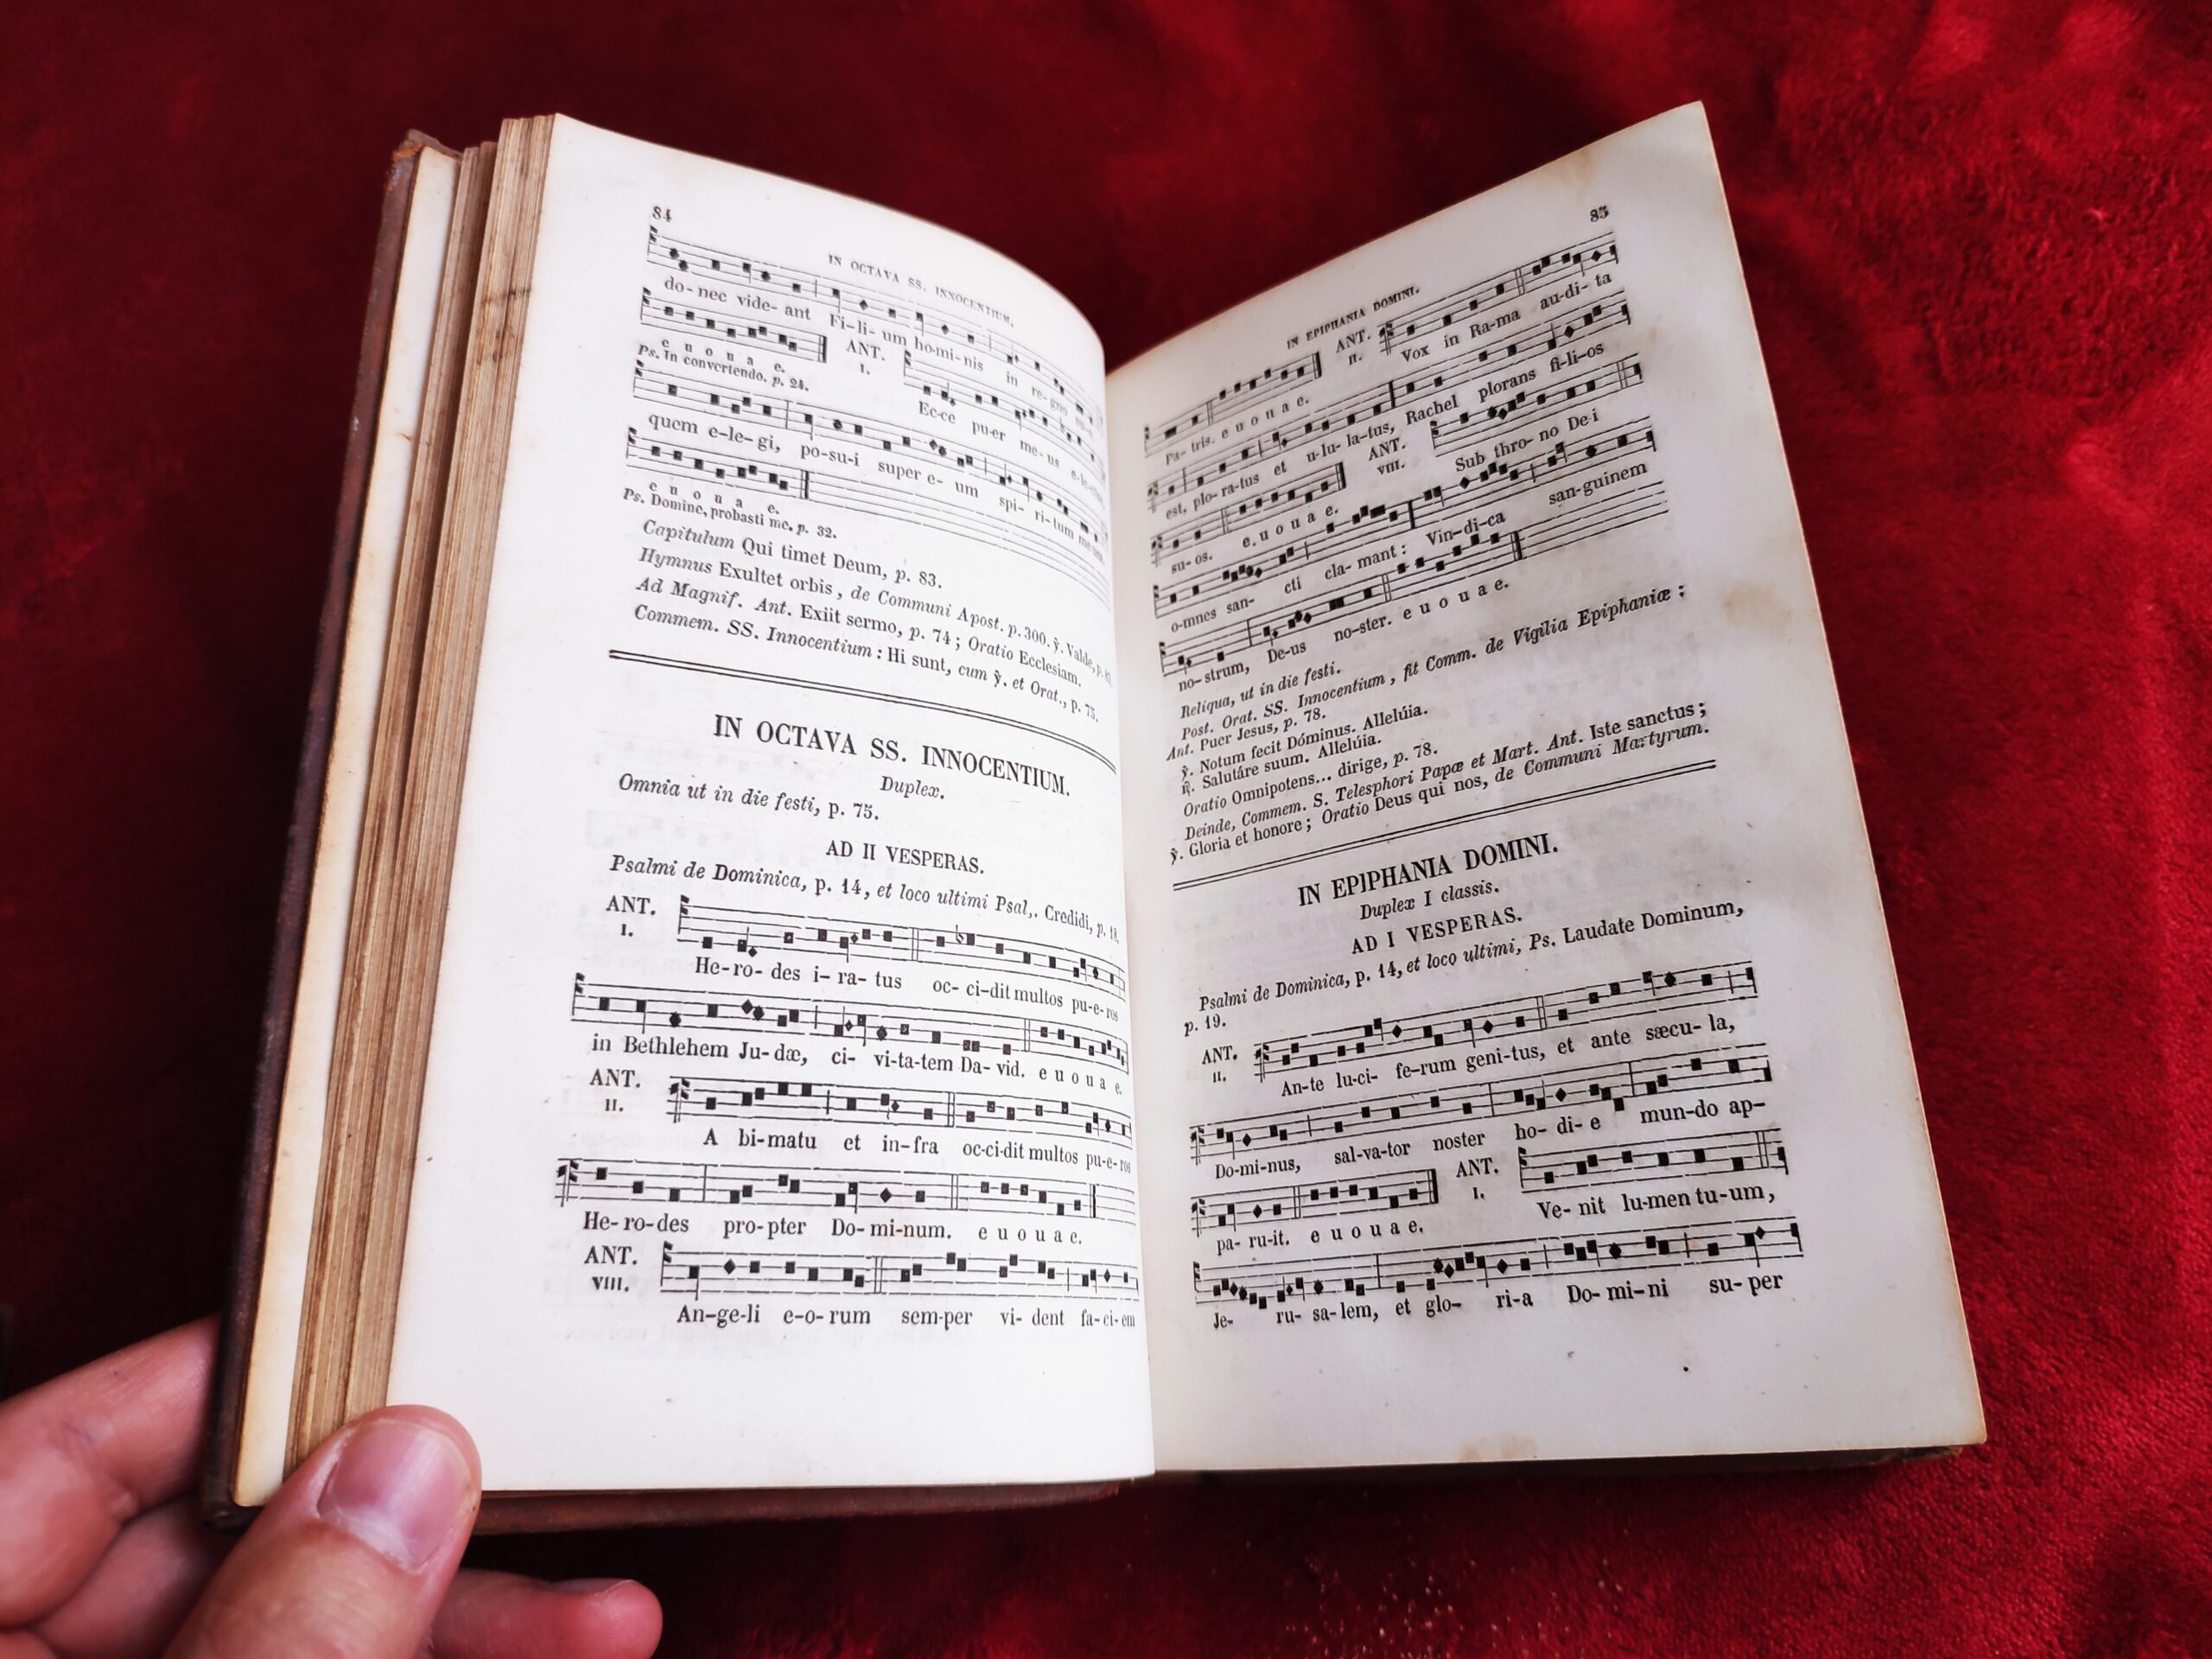 84
IN OCTAVA SS. INNOCENTIUM.
do- nec vide- ant Fi-li- um ho-mi-nis in re-gno
e u o u a e. ANT.
Ps. In convertendo. p. 24. I. Ec-ce pu-er me-us e-le-ctus
quem e-le- gi, po-su-i super e- um spi- ri-tum me-um
e u o u a e.
Ps. Domine, probasti me, p. 32.
Capitulum Qui timet Deum, p. 83.
Hymnus Exultet orbis, de Communi Apost. p. 300. ℣. Valde, p.
Ad Magnif. Ant. Exiit sermo, p. 74 ; Oratio Ecclesiam.
Commem. SS. Innocentium : Hi sunt, cum ℣. et Orat., p. 75.
IN OCTAVA SS. INNOCENTIUM.
Duplex.
Omnia ut in die festi, p. 75.
AD II VESPERAS.
Psalmi de Dominica, p. 14, et loco ultimi Psal,. Credidi, p. 18.
ANT.
I.
He-ro- des i- ra- tus oc- ci-dit multos pu-e-ros
in Bethlehem Ju-dæ, ci- vi-ta-tem Da- vid. e u o u a e.
ANT.
II.
A bi-matu et in-fra oc-ci-dit multos pu-e-ros
He- ro-des pro-pter Do-mi-num. e u o u a e.
ANT.
VIII.
An-ge-li e-o-rum sem-per vi- dent fa-ci-em
85
IN EPIPHANIA DOMINI.
Pa- tris. e u o u a e. ANT. II. Vox in Ra-ma au-di- ta
est, plo- ra-tus et u-lu- la-tus, Rachel plorans fi-li-os
su- os. e u o u a e. ANT. VIII. Sub thro- no De-i
o-mnes san- cti cla- mant : Vin-di-ca san-guinem
no- strum, De-us no-ster. e u o u a e.
Reliqua, ut in die festi.
Post. Orat. SS. Innocentium , fit Comm. de Vigilia Epiphaniæ ;
Ant. Puer Jesus, p. 78.
℣. Notum fecit Dóminus. Allelúia.
℟. Salutáre suum. Allelúia.
Oratio Omnipotens... dirige, p. 78.
Deinde, Commem. S. Telesphori Papæ et Mart. Ant. Iste sanctus ;
℣. Gloria et honore ; Oratio Deus qui nos, de Communi Martyrum.
IN EPIPHANIA DOMINI.
Duplex I classis.
AD I VESPERAS.
Psalmi de Dominica, p. 14, et loco ultimi, Ps. Laudate Dominum,
p. 19.
ANT.
II.
An-te lu-ci- fe-rum geni-tus, et ante sæcu- la,
Do-mi-nus, sal-va-tor noster ho- di- e mun-do ap-
pa- ru-it. e u o u a e. ANT. I. Ve- nit lu-men tu-um,
Je- ru- sa-lem, et glo- ri-a Do- mi-ni su- per